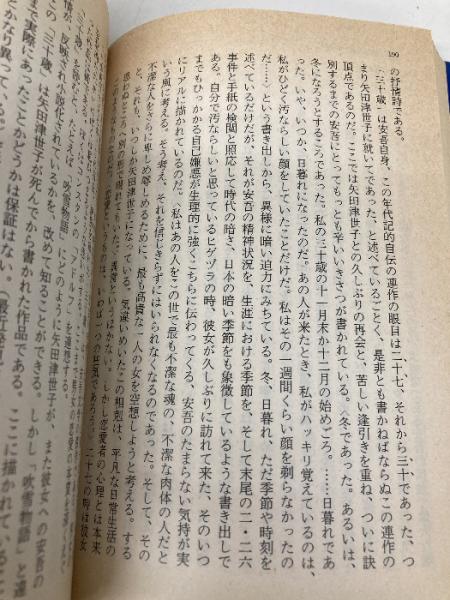 190
の抒情詩である。
「三十歳」は安吾自身、この年代記的自伝の連作の眼目は二十七、それから三十であった、つ
まり矢田津世子に就いてであった、と述べているごとく、是非とも書かねばならぬこの連作の
頂点であるのだ。ここでは矢田津世子との久しぶりの再会と、苦しい逢引きを重ね、ついに訣
別するまでの安吾にとってもっとも辛いいきさつが書かれている。〈冬であった。あるいは、
冬になろうとするころであった。私の三十歳の十一月末か十二月の始めごろ。……日暮れであ
った。いや、いつか、日暮れになったのだ。あの人が来たとき、私がハッキリ覚えているのは、
私がひどく汚ならしい顔をしていたことだけだ。私はその一週間くらい顔を剃らなかったの
だ……〉という書き出しから、異様に暗い迫力にみちている。冬、日暮れ、ただ季節や時刻を
述べているだけだが、それが安吾の精神状況を、生涯における季節を、そして末尾の二・二六
事件と手紙の検閲と照応して時代の暗さ、日本の暗い季節をも象徴しているような書き出しで
ある。自分で汚ならしいと思っているヒゲヅラの時、彼女が久しぶりに訪れて来た、そのいつ
までもひっかかる自己嫌悪が生理的に強くこちらに伝わってくる、安吾のたまらない気持が実
にリアルに描かれているのだ。〈私はあの人をこの世で最も不潔な魂の、不潔な肉体の人だと
いう風に考える。そう考え、それを信じきらずにはいられなくなるのであった。そして、その
不潔な人をさらに卑しめ辱しめるために、最も高貴な一人の女を空想しようと考える。する
と、それも、いつしか矢田津世子になっている。気違いめいたこの相剋は、平凡な日常生活の